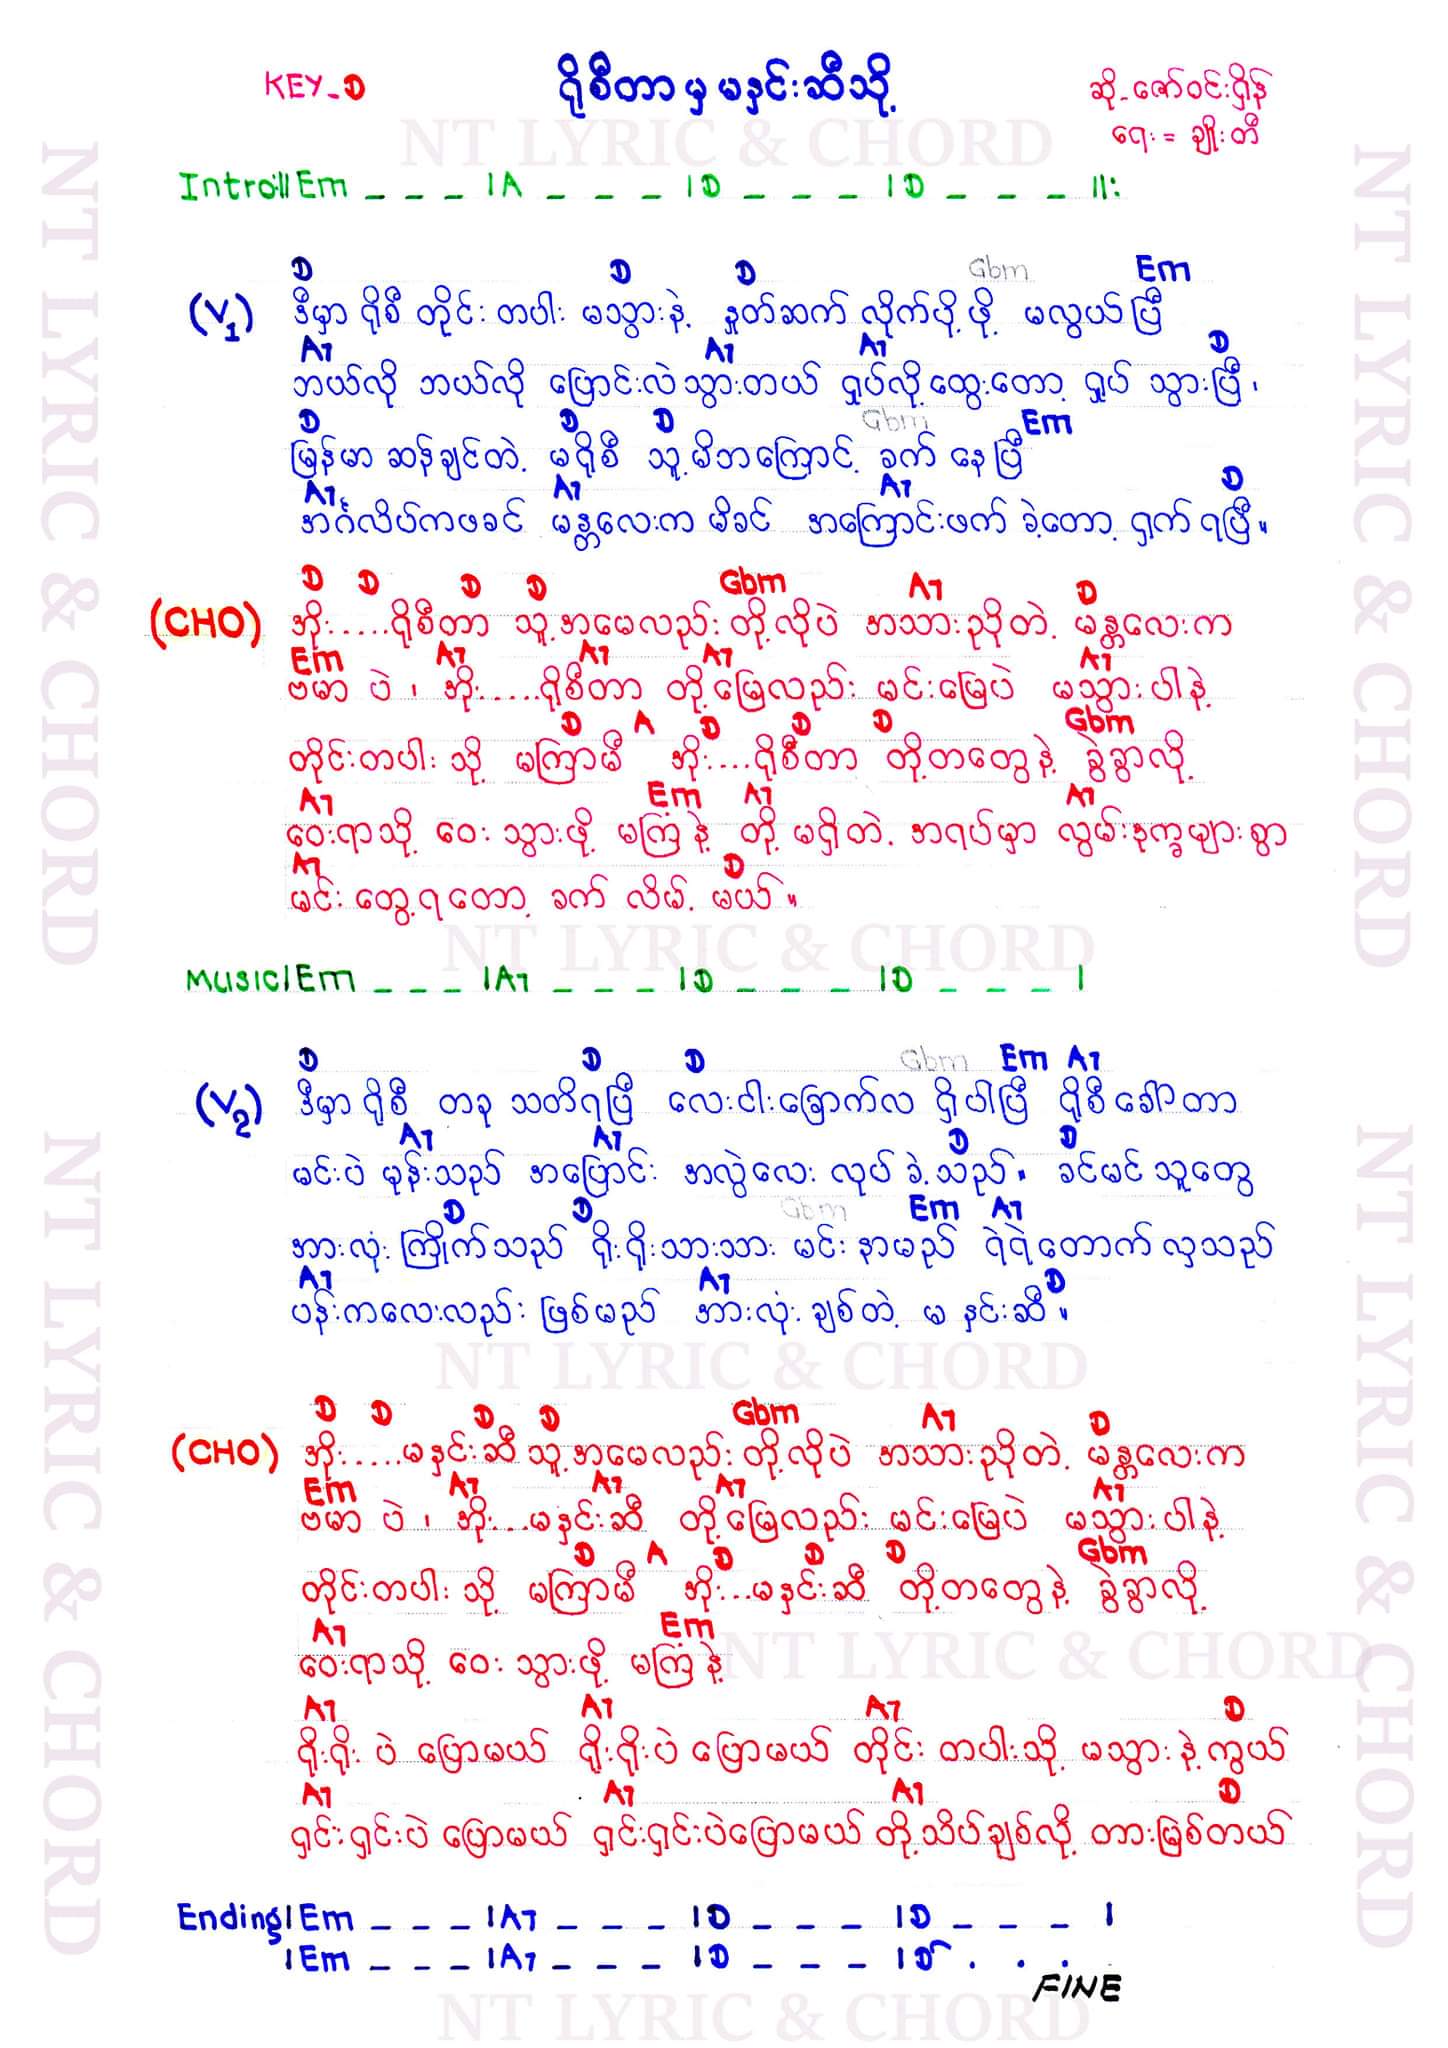 KEY - D
ရိုစီတာမှ မနှင်းဆီသို့
ဆို - ဇော်ဝင်းရှိန်
ရေး = ချိုးတီ
NT LYRIC & CHORD
Intro:|| Em _ _ _ | A _ _ _ | D _ _ _ | D _ _ _ ||:
D D D Gbm Em
(V1) ဒီမှာ ရိုစီ တိုင်းတပါး မသွားနဲ့ နှုတ်ဆက် လိုက်ပို့ဖို့ မလွယ်ပြီ
A7 A7 A7 D
ဘယ်လို ဘယ်လို ပြောင်းလဲသွားတယ် ရှုပ်လို့ထွေးတော့ ရှုပ် သွားပြီ၊
D D D Gbm Em
မြန်မာဆန်ချင်တဲ့ မရိုစီ သူ့မိဘကြောင့် ခက် နေပြီ
A7 A7 A7 D
အင်္ဂလိပ်ကဖခင် မန္တလေးက မိခင် အကြောင်းဖက် ခဲ့တော့ ရှက်ရပြီ။
D D D D Gbm A7 D
(CHO) အိုး.....ရိုစီတာ သူ့အမေလည်း တို့လိုပဲ အသားညိုတဲ့ မန္တလေးက
Em A7 A7 A7 A7
ဗမာ ပဲ ၊ အိုး.....ရိုစီတာ တို့မြေလည်း မင်းမြေပဲ မသွားပါနဲ့
D A D D D Gbm
တိုင်းတပါးသို့ မကြာမီ အိုး....ရိုစီတာ တို့တတွေနဲ့ ခွဲခွာလို့
A7 Em A7 A7
ဝေးရာသို့ ဝေးသွားဖို့ မကြံနဲ့ တို့မရှိတဲ့ အရပ်မှာ လွမ်းဒုက္ခများစွာ
A7 D
မင်းတွေ့ရတော့ ခက် လိမ့် မယ်။
NT LYRIC & CHORD
Music | Em _ _ _ | A7 _ _ _ | D _ _ _ | D _ _ _ |
D D D Gbm Em A7
(V2) ဒီမှာ ရိုစီ တခု သတိရပြီ လေးငါးခြောက်လ ရှိပါပြီ ရိုစီခေါ်တာ
A7 A7 D D
မင်းပဲ မုန်းသည် အပြောင်း အလွဲလေး လုပ် ခဲ့သည်။ ခင်မင်သူတွေ
D D Gbm Em A7
အားလုံး ကြိုက်သည် ရိုးရိုးသားသား မင်းနာမည် ရဲရဲတောက်လှသည်
A7 A7 D
ပန်းကလေးလည်း ဖြစ်မည် အားလုံးချစ်တဲ့ မနှင်းဆီ။
NT LYRIC & CHORD
D D D D Gbm A7 D
(CHO) အိုး.....မနှင်းဆီ သူ့အမေလည်း တို့လိုပဲ အသားညိုတဲ့ မန္တလေးက
Em A7 A7 A7 A7
ဗမာ ပဲ ၊ အိုး...မနှင်းဆီ တို့မြေလည်း မင်းမြေပဲ မသွားပါနဲ့
D A D D D Gbm
တိုင်းတပါးသို့ မကြာမီ အိုး...မနှင်းဆီ တို့တတွေနဲ့ ခွဲခွာလို့
A7 Em
ဝေးရာသို့ ဝေးသွားဖို့ မကြံနဲ့
NT LYRIC & CHORD
A7 A7 A7 D
ရိုးရိုးပဲ ပြောမယ် ရိုးရိုးပဲ ပြောမယ် တိုင်းတပါးသို့ မသွားနဲ့ကွယ်
A7 A7 A7 D
ရှင်းရှင်းပဲ ပြောမယ် ရှင်းရှင်းပဲပြောမယ် တို့သိပ်ချစ်လို့ တားမြစ်တယ်
Ending | Em _ _ _ | A7 _ _ _ | D _ _ _ | D _ _ _ |
| Em _ _ _ | A7 _ _ _ | D _ _ _ | D . . .
FINE
NT LYRIC & CHORD
NT LYRIC & CHORD
NT LYRIC & CHORD
NT LYRIC & CHORD
NT LYRIC & CHORD